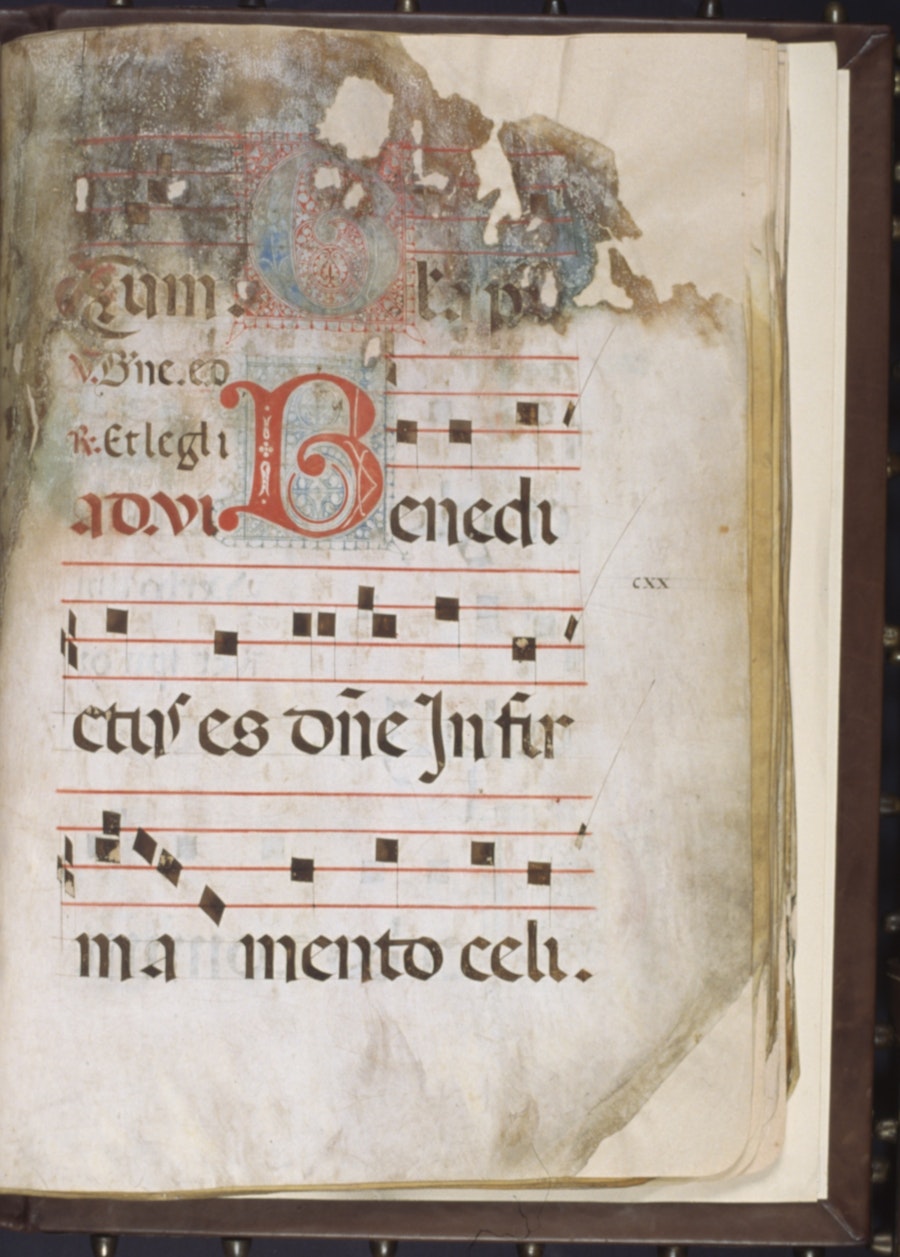 V. B'ne. eo
R. Et legl i
AD. VI Benedi
cxx
ctus es dn̄e In fir
ma mento celi.